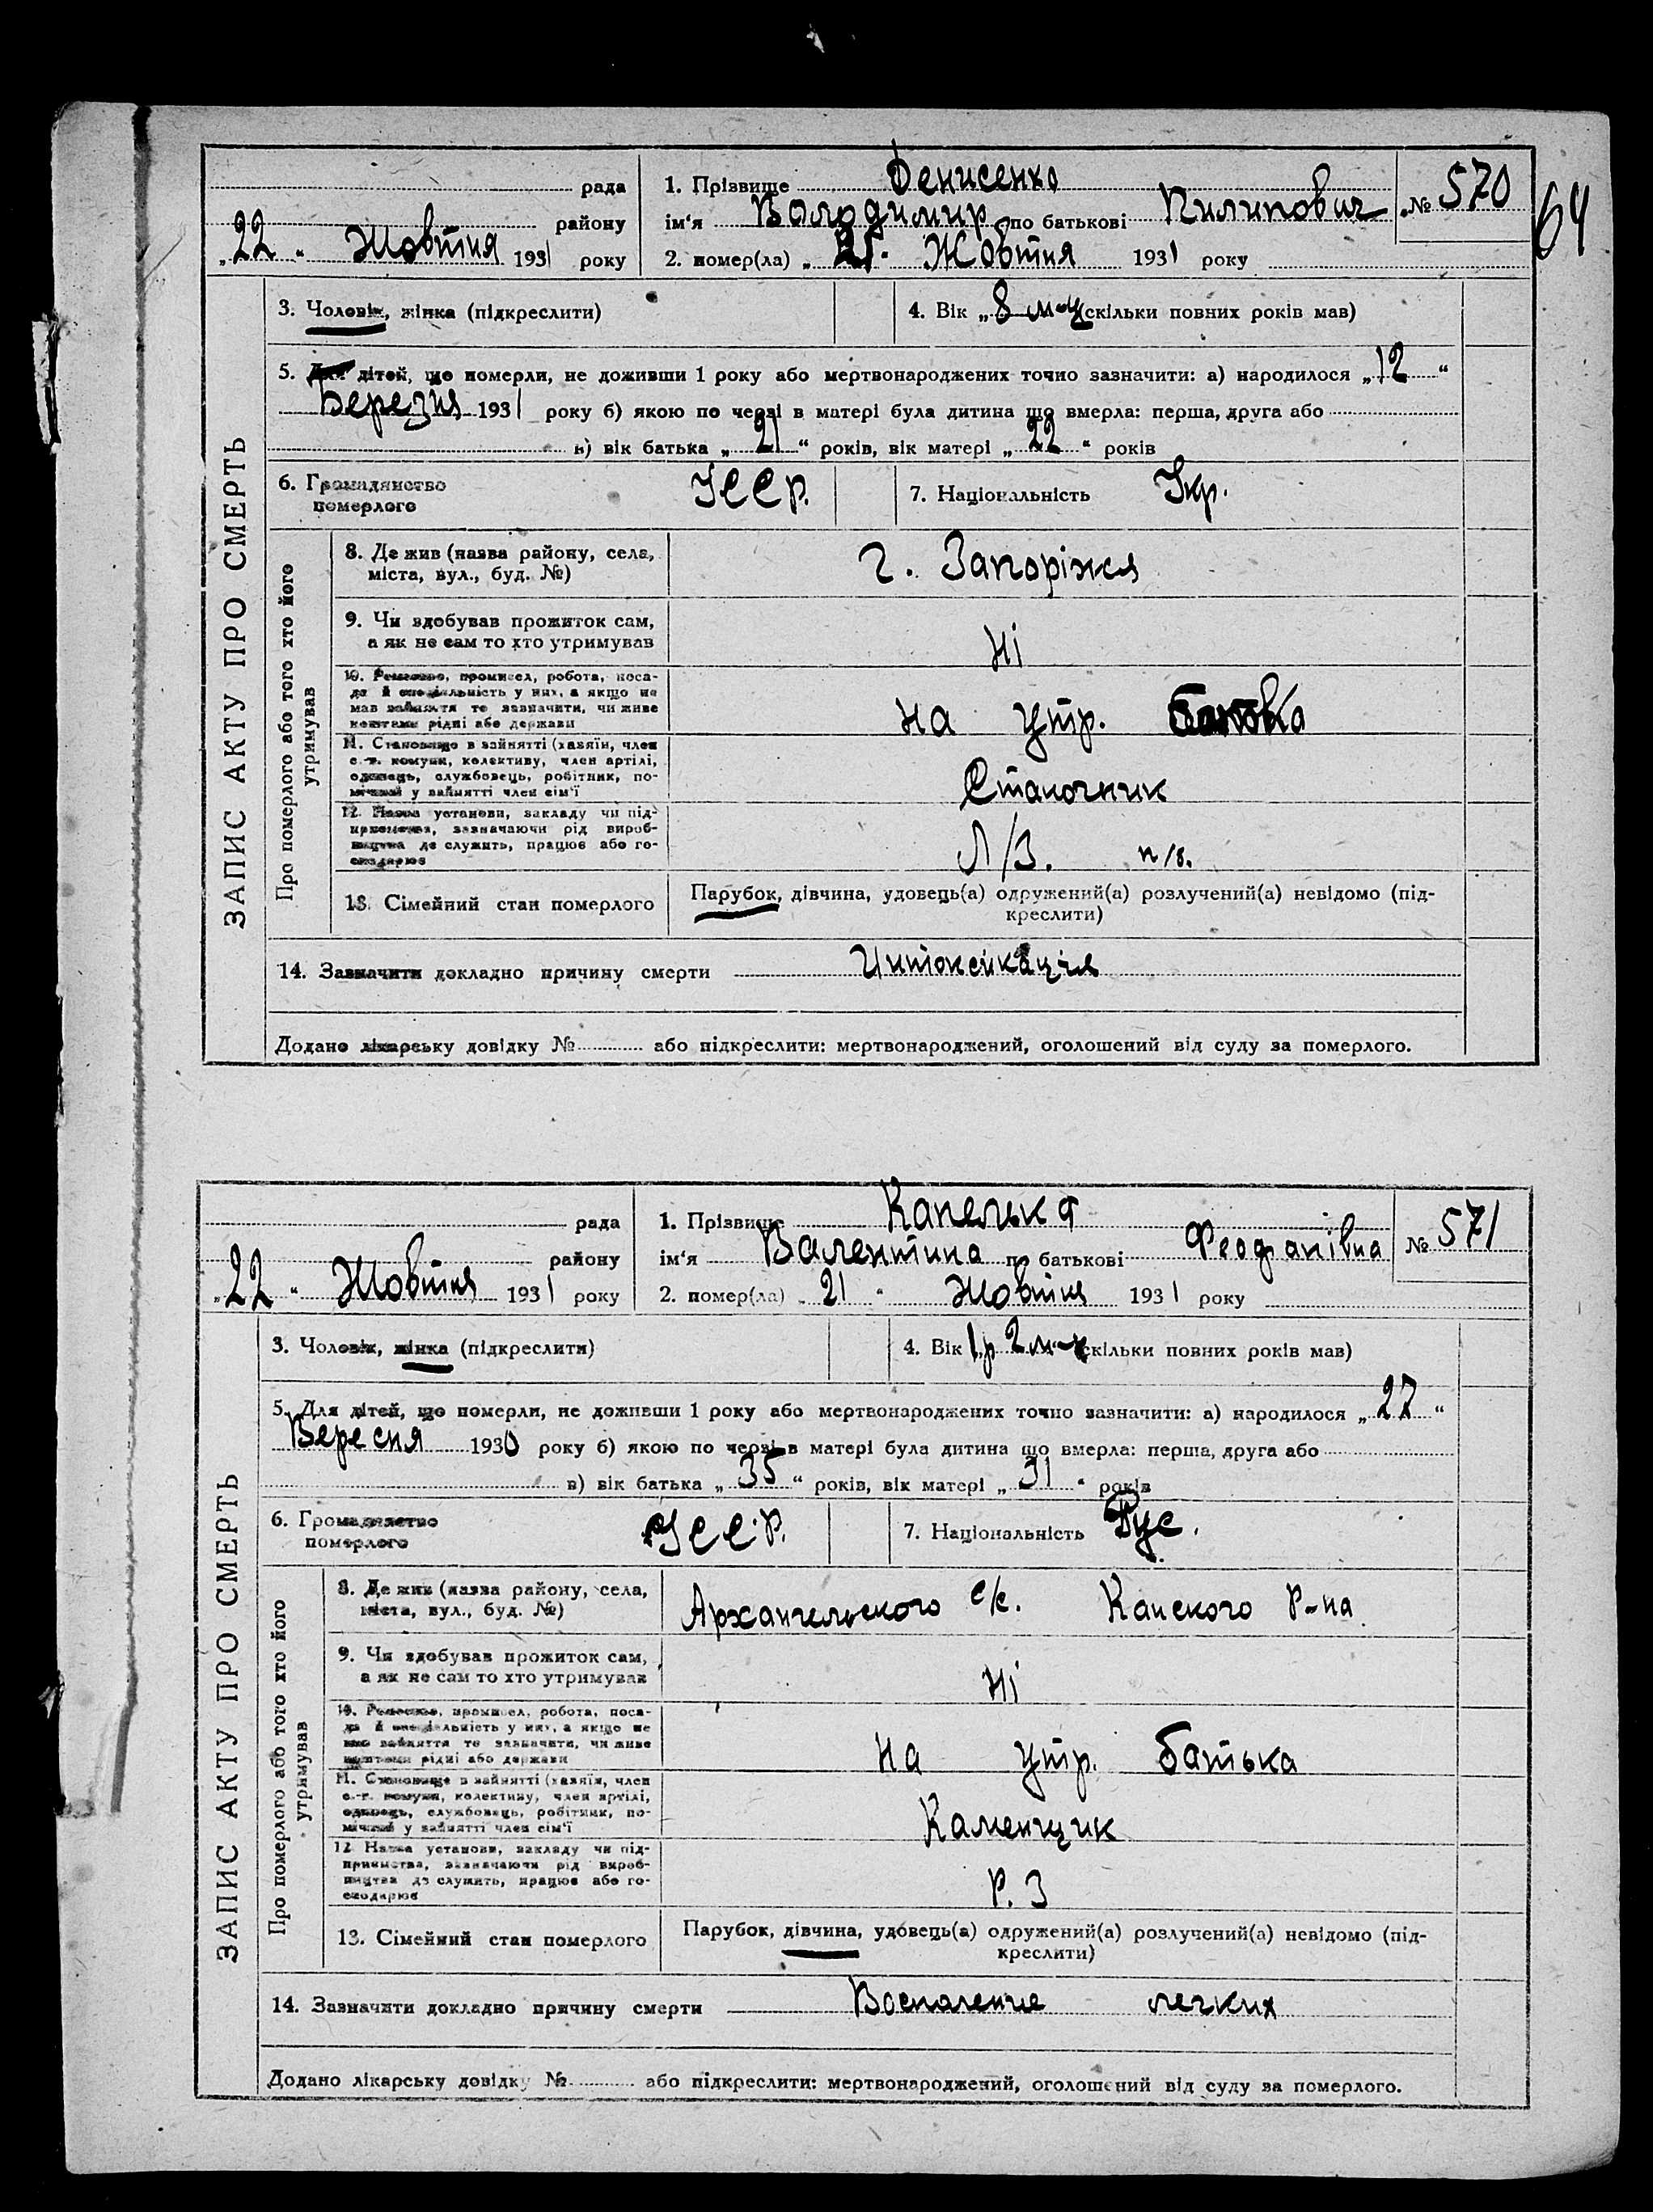 64
рада
району
„22“ Жовтня 1931 року
1. Прізвище Денисенко
ім‘я Володимир по батькові Пилипович
№ 570
2. помер(ла) „21“ Жовтня 1931 року
ЗАПИС АКТУ ПРО СМЕРТЬ
3. Чоловік, жінка (підкреслити)
4. Вік „8 м-ц скільки повних років мав)
5. Для дітей, що померли, не доживши 1 року або мертвонароджених точно зазначити: а) народилося „12“
Березня 1931 року б) якою по черзі в матері була дитина що вмерла: перша, друга або
в) вік батька „21“ років, вік матері „22“ років
6. Громадянство
померлого
УССР.
7. Національність Укр.
Про померлого або того хто його
утримував
8. Де жив (назва району, села,
міста, вул., буд. №)
г. Запоріжя
9. Чи здобував прожиток сам,
а як не сам то хто утримував
Ні
10. Ремество, промисел, робота, поса-
да й спеціяльність у них, а якщо не
мав зайняття то зазначити, чи живе
коштами рідні або держави
на утр. батька
11. Становище в зайнятті (хазяїн, член
с.-г. комуни, колективу, член артілі,
одинець, службовець, робітник, по-
мічний у зайнятті член сім‘ї
Станочник
12. Назва установи, закладу чи під-
приємства, зазначаючи рід вироб-
ництва де служить, працює або го-
сподарює
Л/З. п/в.
13. Сімейний стан померлого
Парубок, дівчина, удовець(а) одружений(а) розлучений(а) невідомо (під-
креслити)
14. Зазначити докладно причину смерти Интоксикація
Додано лікарську довідку № або підкреслити: мертвонароджений, оголошений від суду за померлого.
рада
району
„22“ Жовтня 1931 року
1. Прізвище Капелька
ім‘я Валентина по батькові Феофанівна
№ 571
2. помер(ла) „21“ Жовтня 1931 року
ЗАПИС АКТУ ПРО СМЕРТЬ
3. Чоловік, жінка (підкреслити)
4. Вік 1 р 2 м-ц скільки повних років мав)
5. Для дітей, що померли, не доживши 1 року або мертвонароджених точно зазначити: а) народилося „27“
Вересня 1930 року б) якою по черзі в матері була дитина що вмерла: перша, друга або
в) вік батька „35“ років, вік матері „31“ років
6. Громадянство
померлого
УССР.
7. Національність Рус.
Про померлого або того хто його
утримував
8. Де жив (назва району, села,
міста, вул., буд. №)
Архангельского с/с. Канского Р-на
9. Чи здобував прожиток сам,
а як не сам то хто утримував
Ні
10. Ремество, промисел, робота, поса-
да й спеціяльність у них, а якщо не
має зайняття то зазначити, чи живе
коштами рідні або держави
на утр. батька
11. Становище в зайнятті (хазяїн, член
с.-г. комуни, колективу, член артілі,
одинець, службовець, робітник, по-
мічний у зайнятті член сім‘ї
Каменщик
12. Назва установи, закладу чи під-
приємства, зазначаючи рід вироб-
ництва де служить, працює або го-
сподарює
Р.З
13. Сімейний стан померлого
Парубок, дівчина, удовець(а) одружений(а) розлучений(а) невідомо (під-
креслити)
14. Зазначити докладно причину смерти Воспаление легких
Додано лікарську довідку № або підкреслити: мертвонароджений, оголошений від суду за померлого.